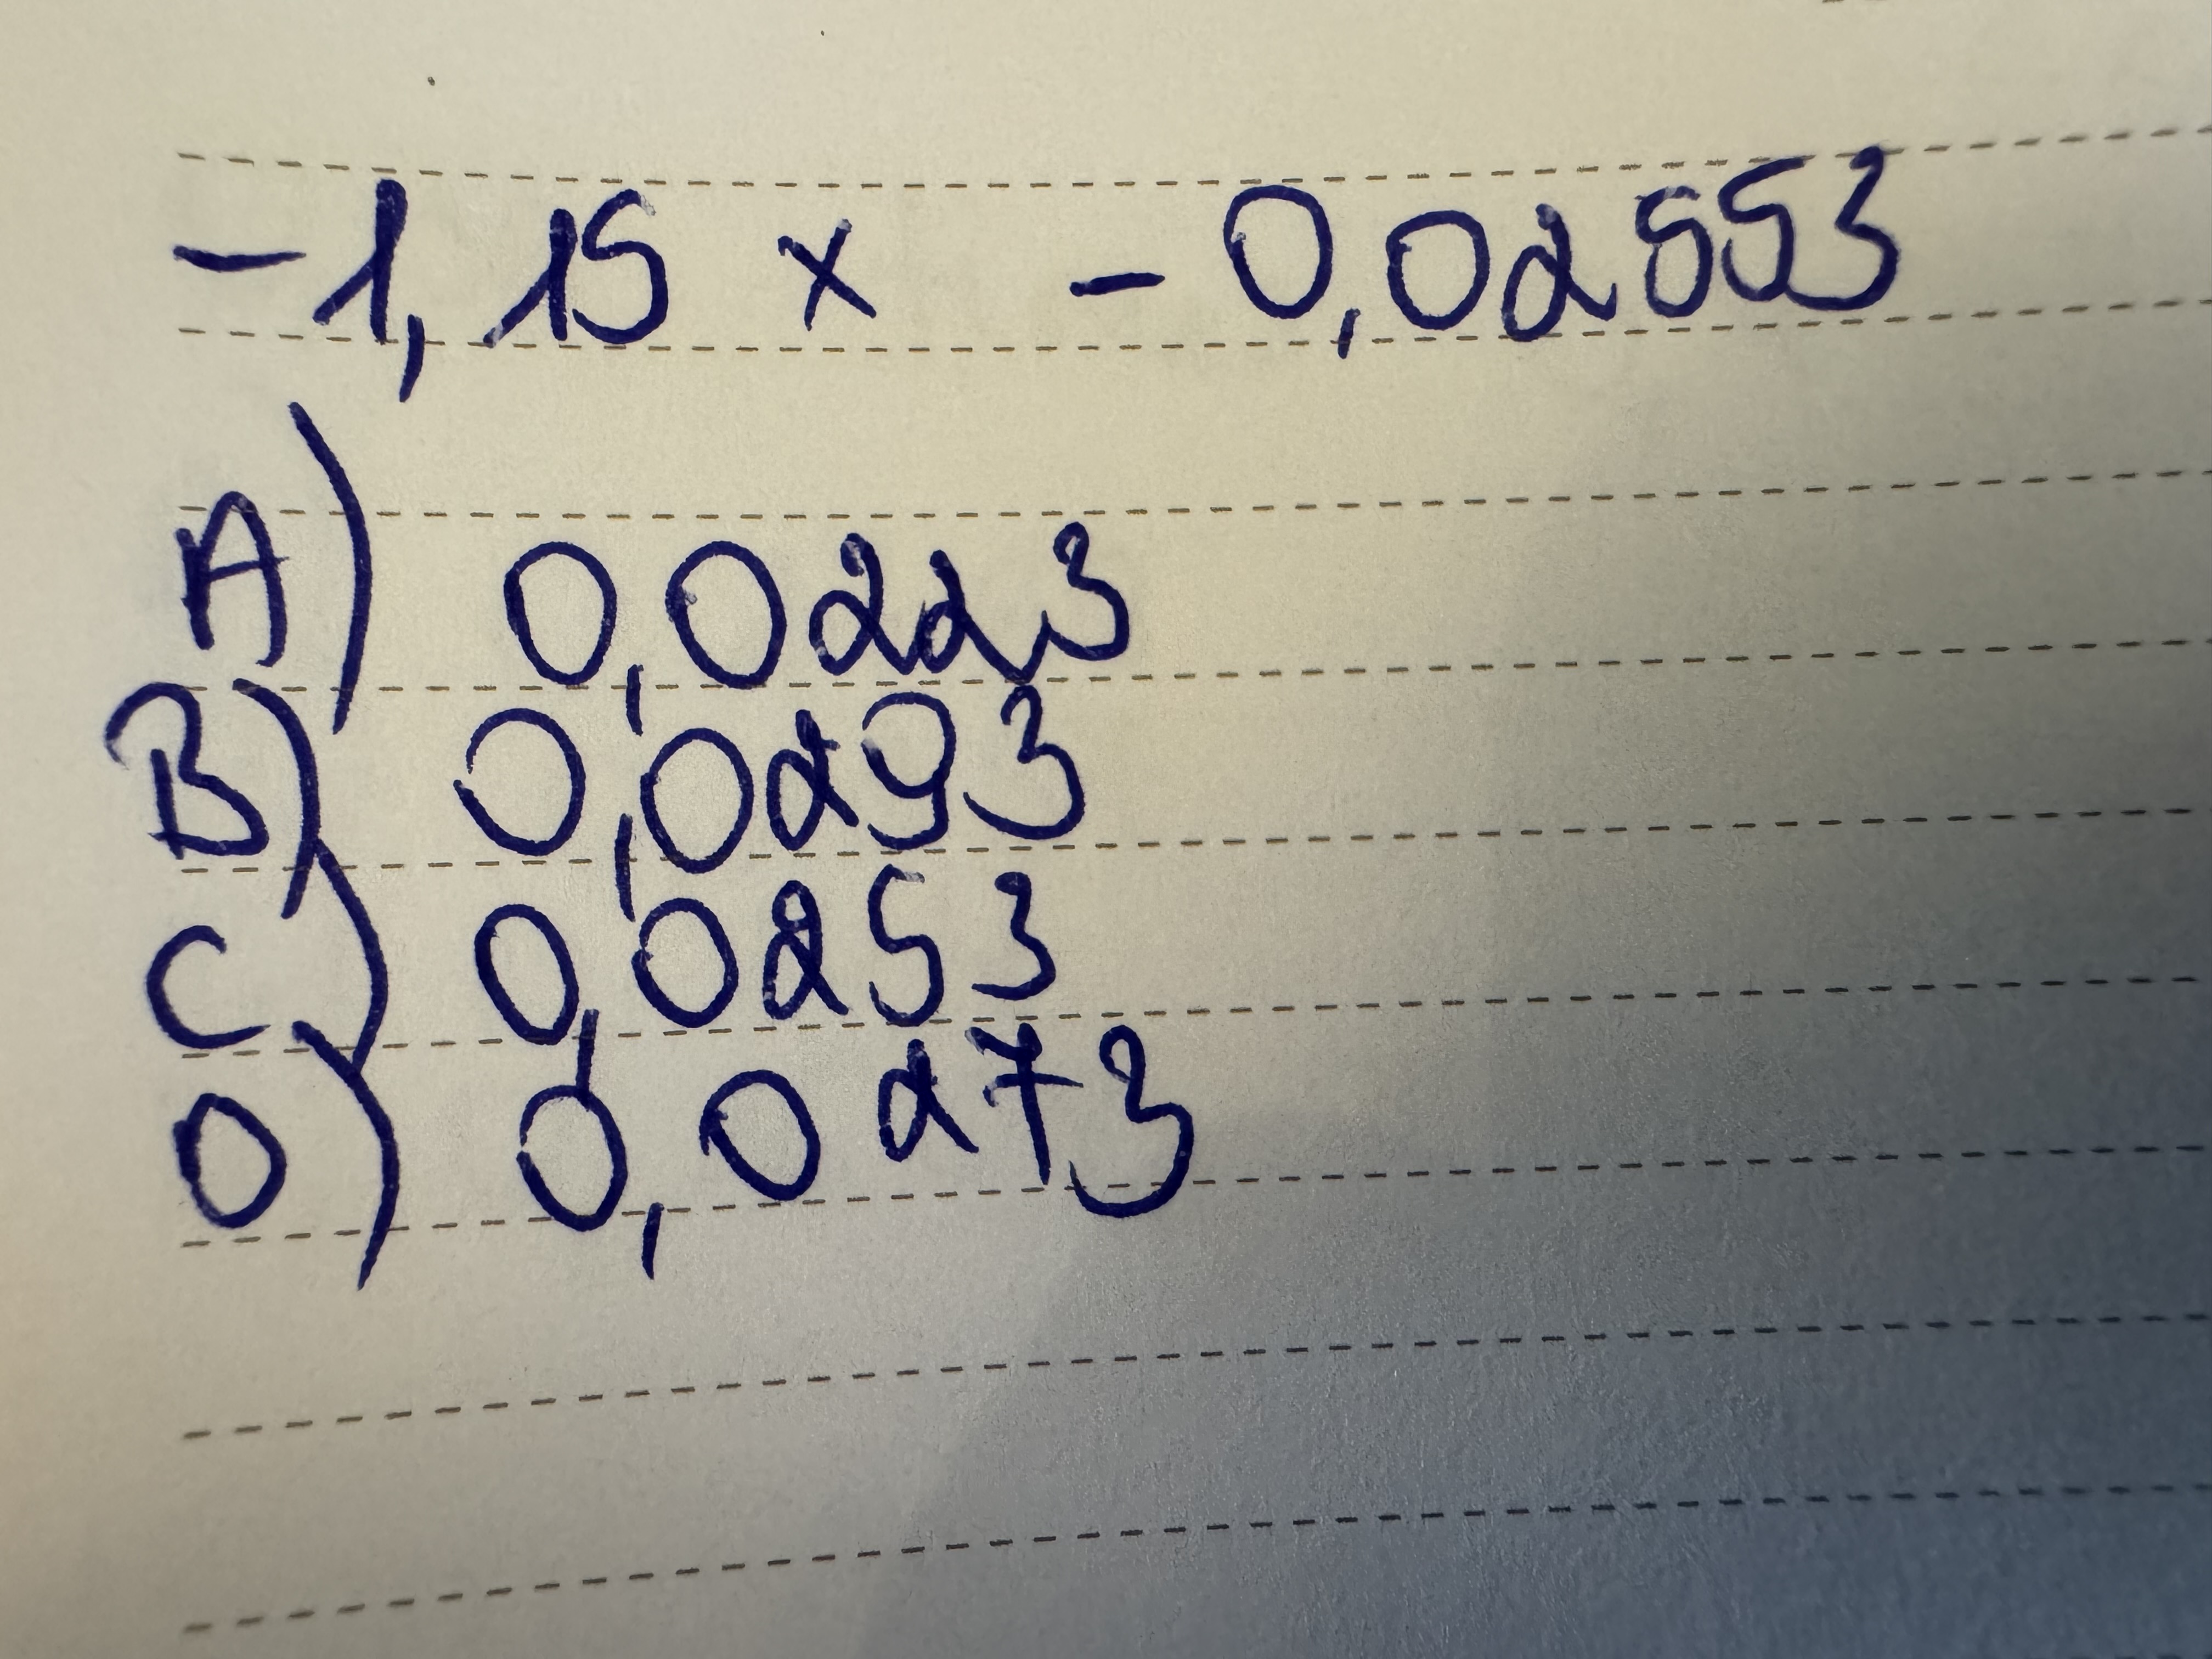 -1,15 x -0,02553
A) 0,0223
B) 0,0293
C) 0,0253
D) 0,0273